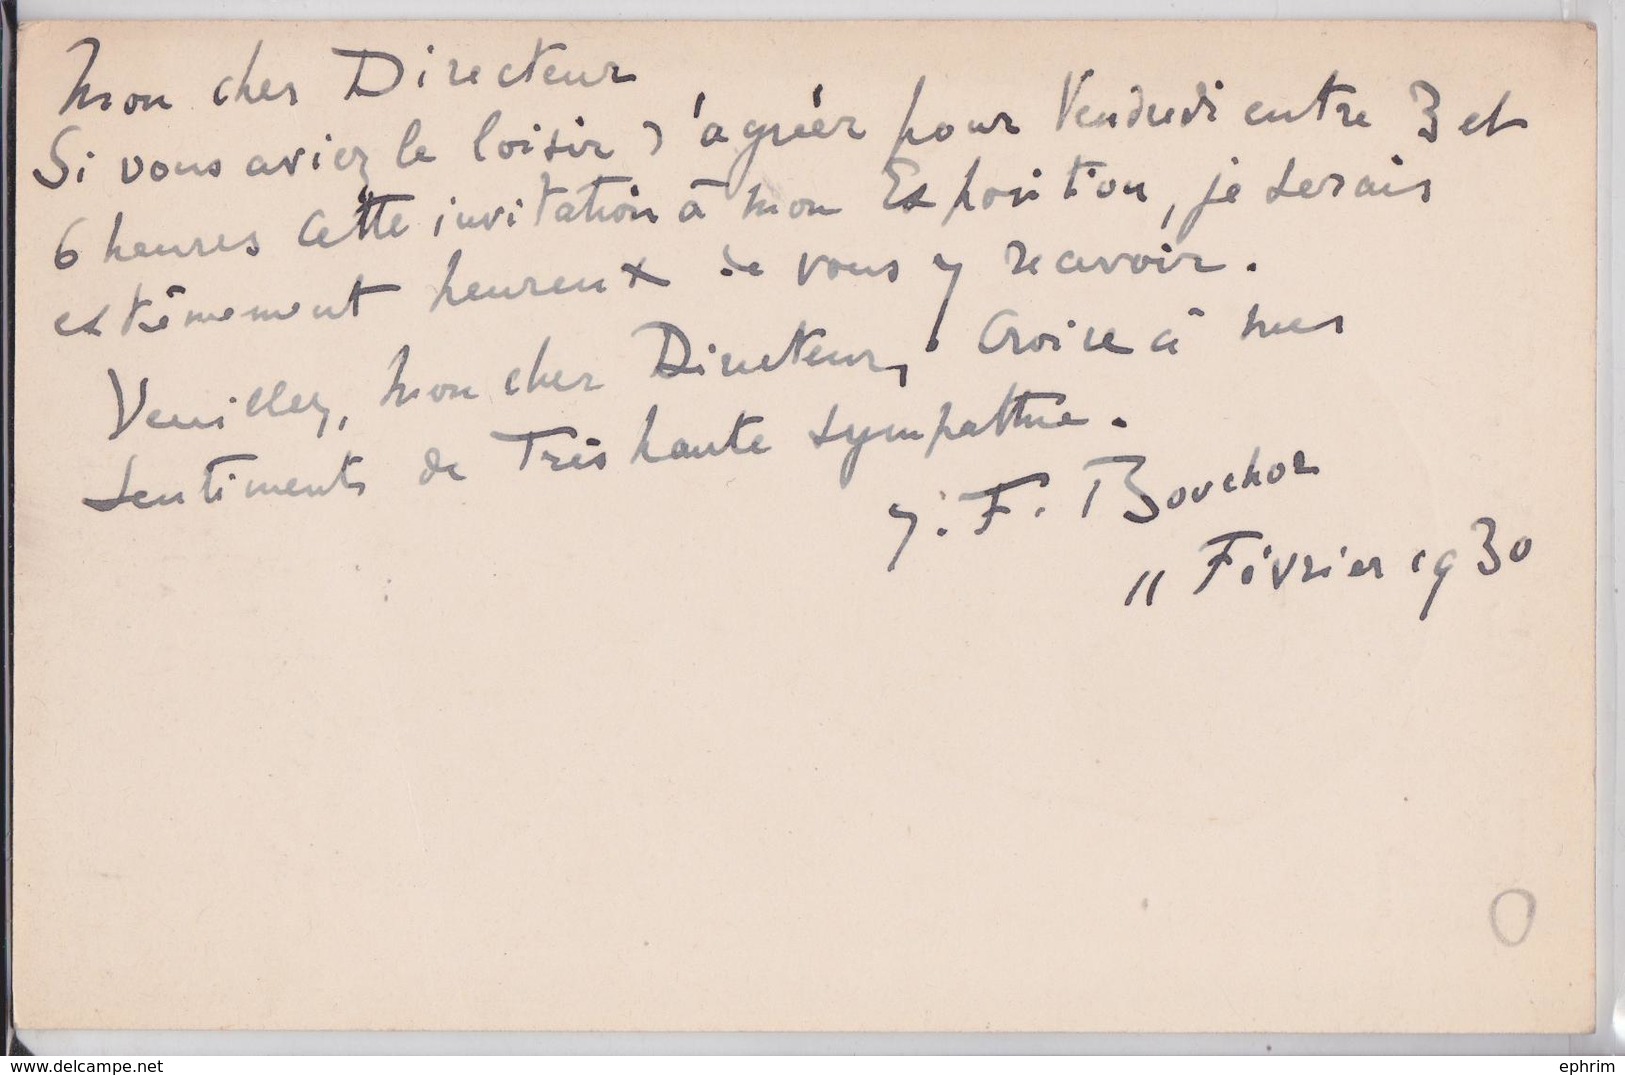 Mon cher Directeur
Si vous aviez le loisir d'agréer pour Vendredi entre 3 et
6 heures cette invitation à mon Exposition, je serais
extrêmement heureux de vous y recevoir.
Veuillez, mon cher Directeur, croire à mes
sentiments de très haute sympathie.
J. F. Bouchor
11 Février 1930
0
ephrim